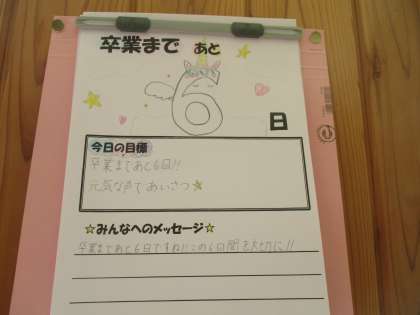 卒業まで あと
6
日
今日の目標
卒業まであと6日!!
元気な声であいさつ☆
☆みんなへのメッセージ☆
卒業まであと6日ですね!!この6日間を大切に!!